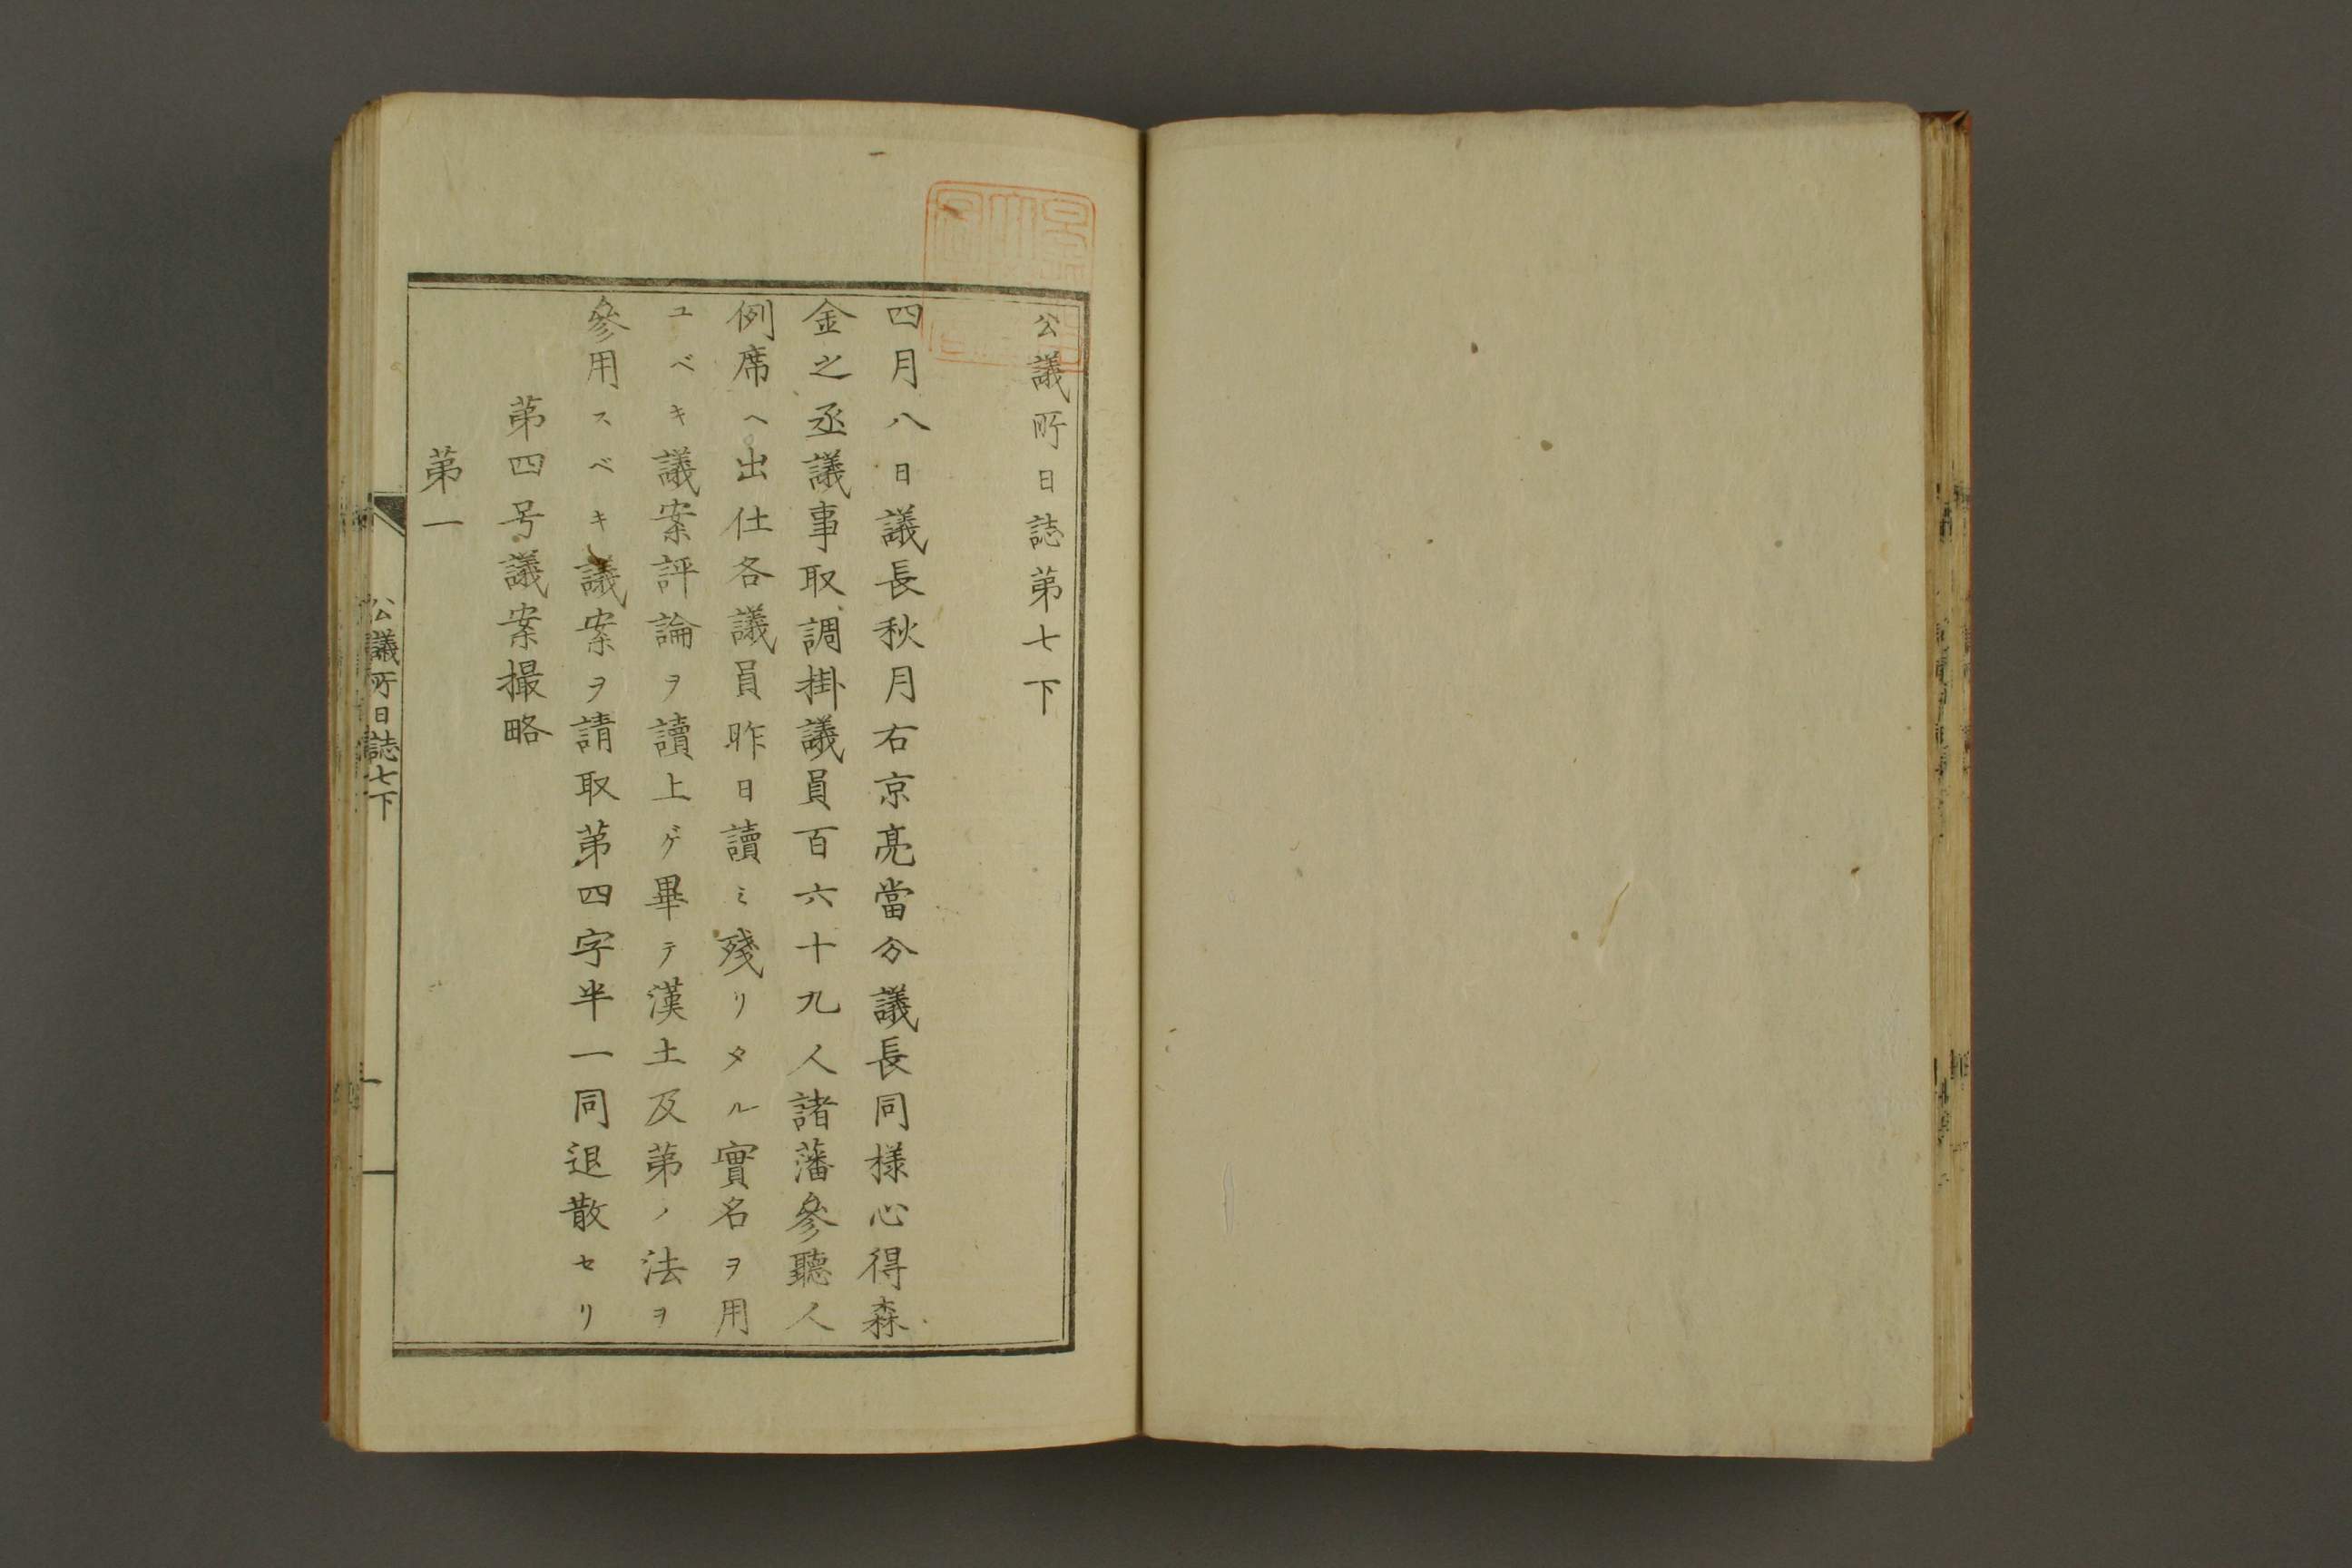 公議所日誌第七下
四月八日議長秋月右京亮當分議長同樣心得森
金之丞議事取調掛議員百六十九人諸藩參聽人
例席ヘ出仕各議員昨日讀ミ殘リタル實名ヲ用
ユベキ議案評論ヲ讀上ゲ畢テ漢土及第ノ法ヲ
參用スベキ議案ヲ請取第四字半一同退散セリ
第四号議案撮略
第一
公議所日誌七下
一